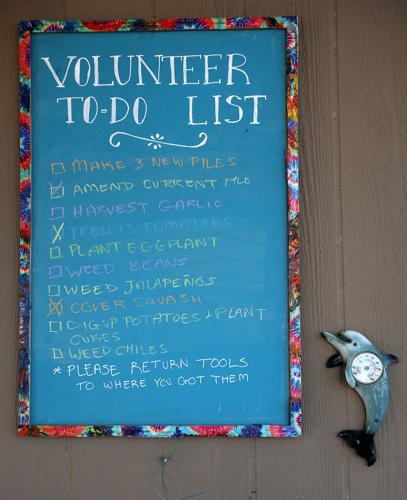 VOLUNTEER
TO-DO LIST
MAKE 3 NEW PILES
AMEND CURRENT PILE
HARVEST GARLIC
TRELLIS TOMATOES
PLANT EGGPLANT
WEED BEANS
WEED JALAPEÑOS
COVER SQUASH
DIG UP POTATOES & PLANT
CUKES
WEED CHILES
* PLEASE RETURN TOOLS
TO WHERE YOU GOT THEM